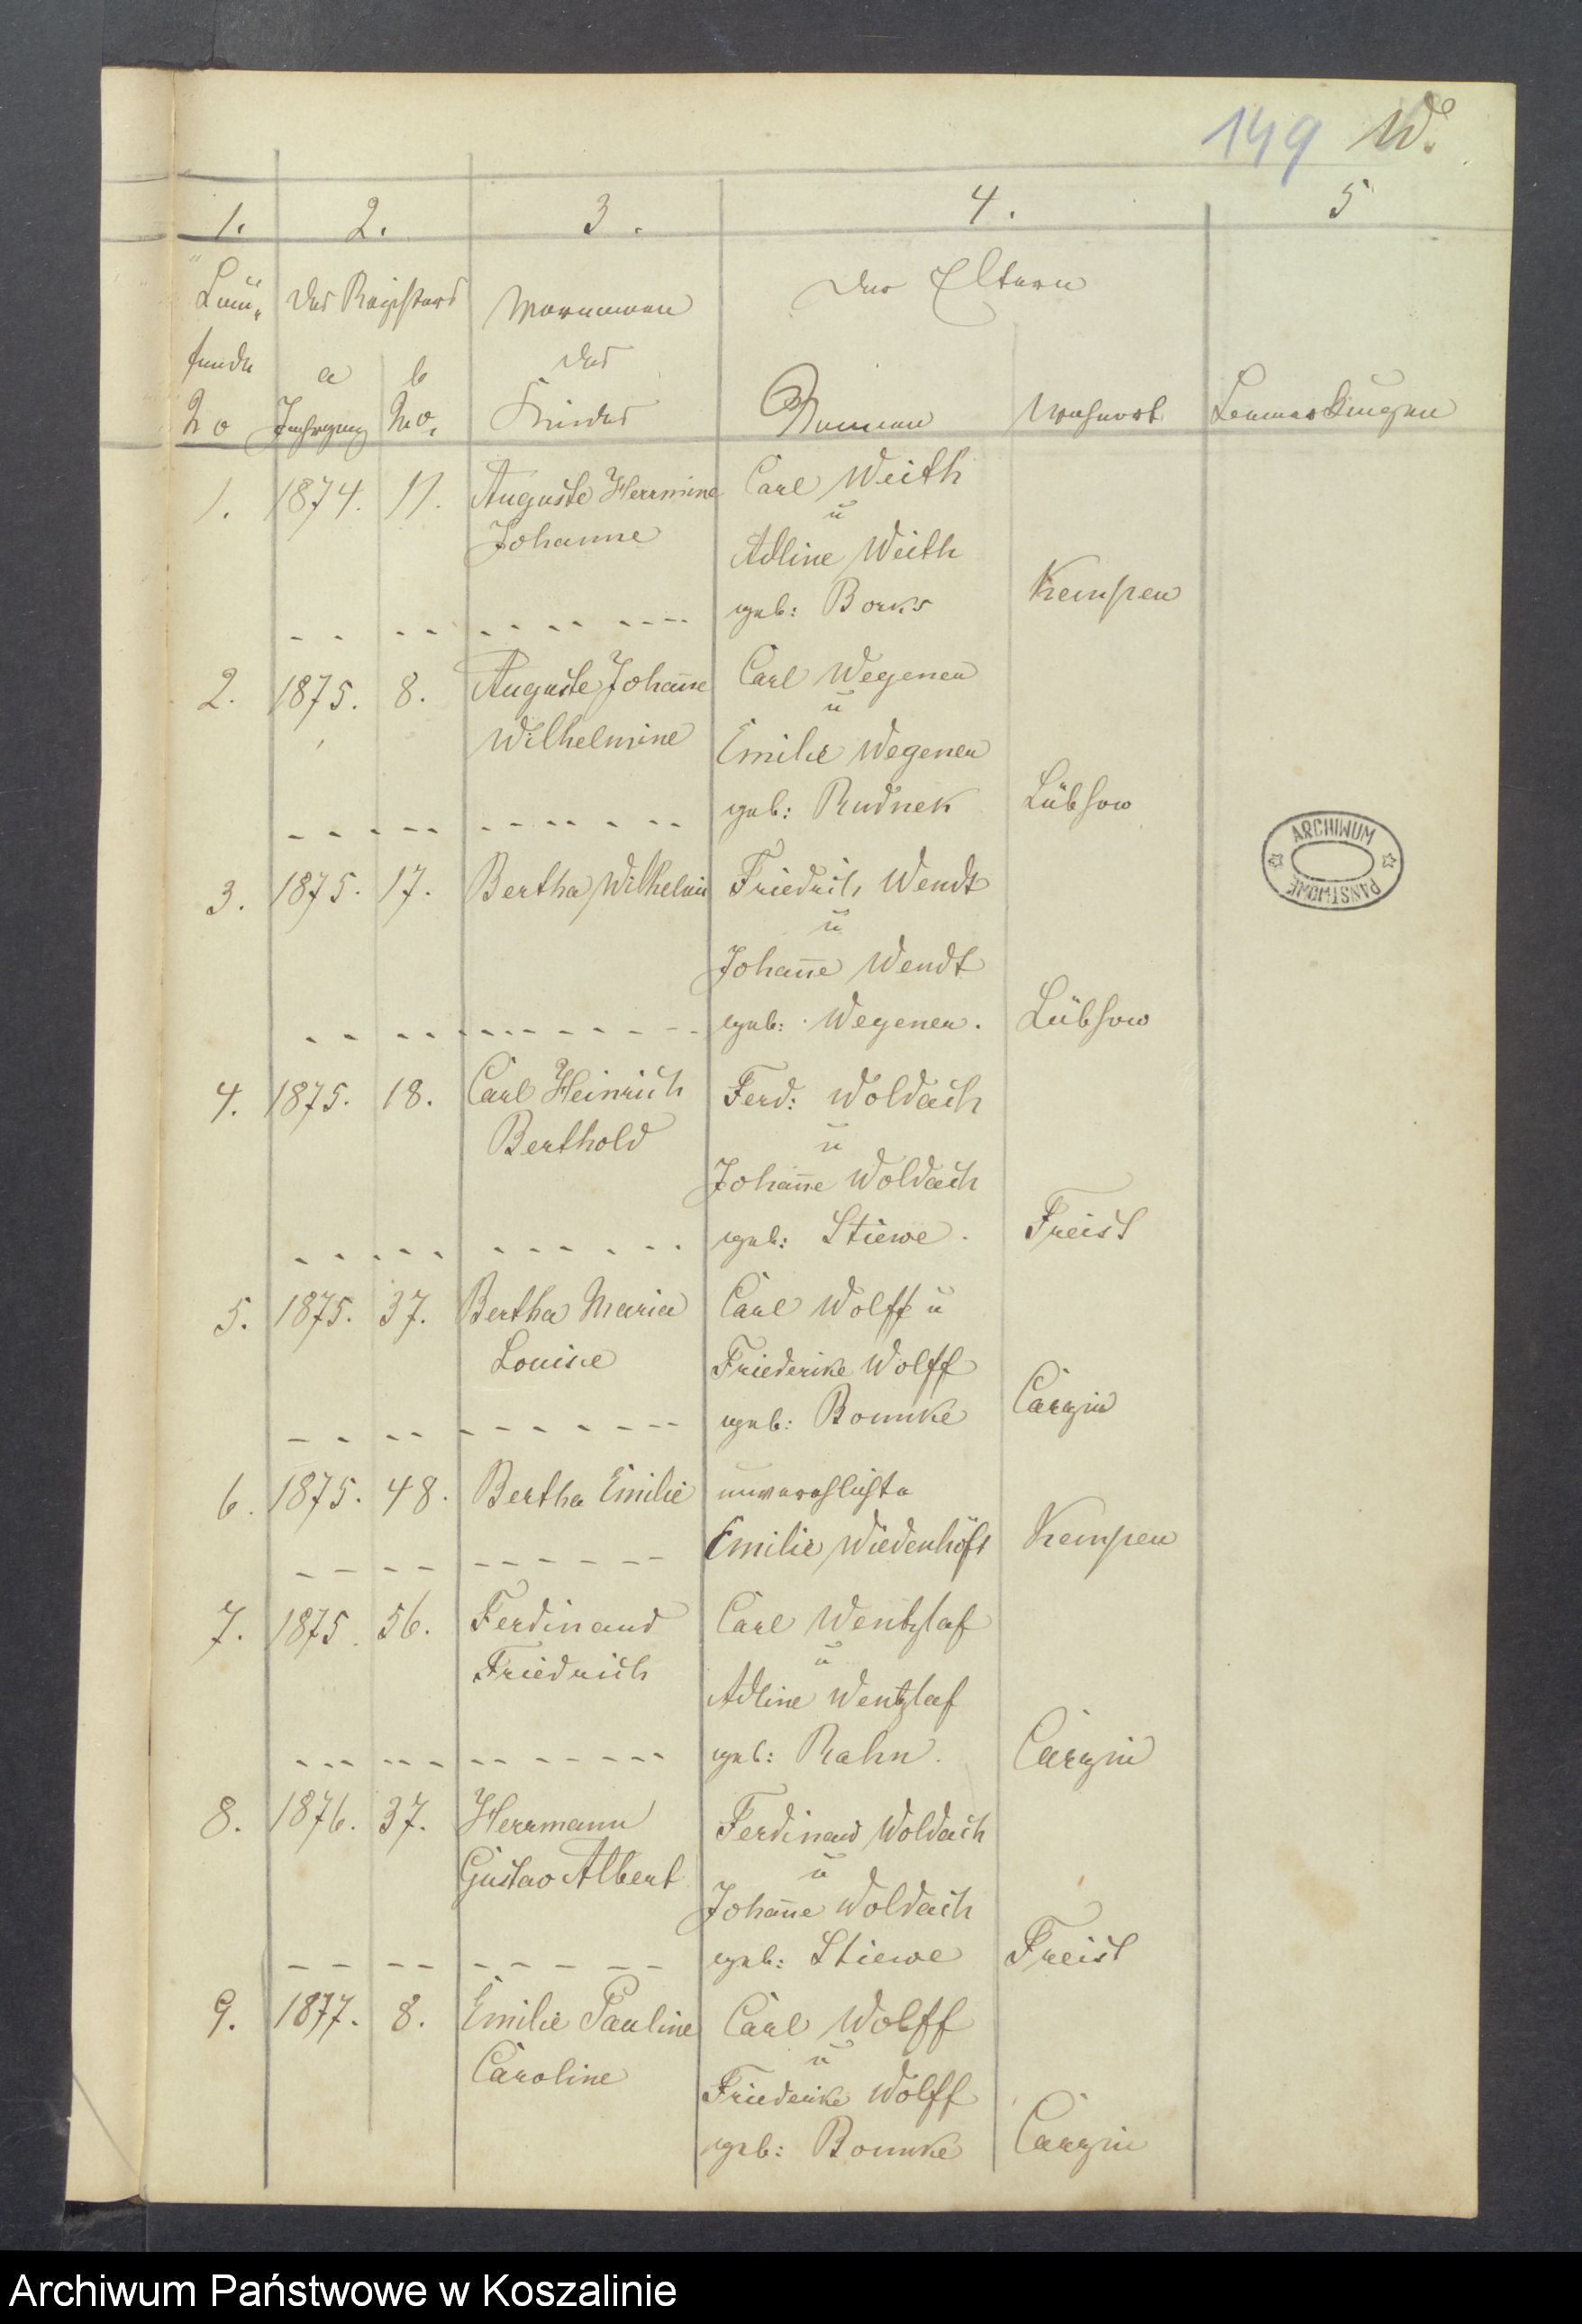 149 W.
1. 2. 3. 4. 5
Lau„ Des Registers Vornamen Der Eltern
fende a b des
No Jahrgang No. Kindes Namen Wohnort Bemerkungen
1. 1874. 11. Auguste Herrmine Carl Weith
Johanne ü
Adline Weith
geb: Borks Kempen
2. 1875. 8. Auguste Joha̅ne Carl Wegener
ü
Wilhelmine Emilie Wegener
geb: Rudnek Lübsow
3. 1875. 17. Bertha Wilhelmi Friedrich Wendt
ü
Joha̅ne Wendt
geb: Wegener. Lübsow
4. 1875. 18. Carl Heinrich Ferd: Woldach
Berthold ü
Joha̅ne Woldach
geb: Stiewe. Freist
5. 1875. 37. Bertha Maria Carl Wolff ü
Louise Friederike Wolff
geb: Bonnke Carzin
6. 1875. 48. Bertha Emilie unverehlichte
Emilie Wiedenhöft Kempen
7. 1875. 56. Ferdinand Carl Wentzlaf
Friedrich ü
Adline Wentzlaf
geb: Rahn. Carzin
8. 1876. 37. Herrmann Ferdinand Woldach
Gustav Albert ü
Joha̅ne Woldach
geb: Stiewe Freist
9. 1877. 8. Emilie Pauline Carl Wolff
Caroline ü
Friederike Wolff
geb: Bonnke Carzin
ARCHIWUM
PAŃSTWOWE
Archiwum Państwowe w Koszalinie